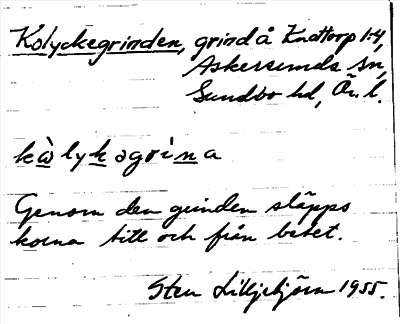 Kolyckegrinden, grind å Knattorp 1:4,
Askersunds sn,
Sundbo hd, Ör. l.
kàlykəgrìna
Genom den grinden släpps
korna till och från betet.
Sten Liljebjörn 1955.